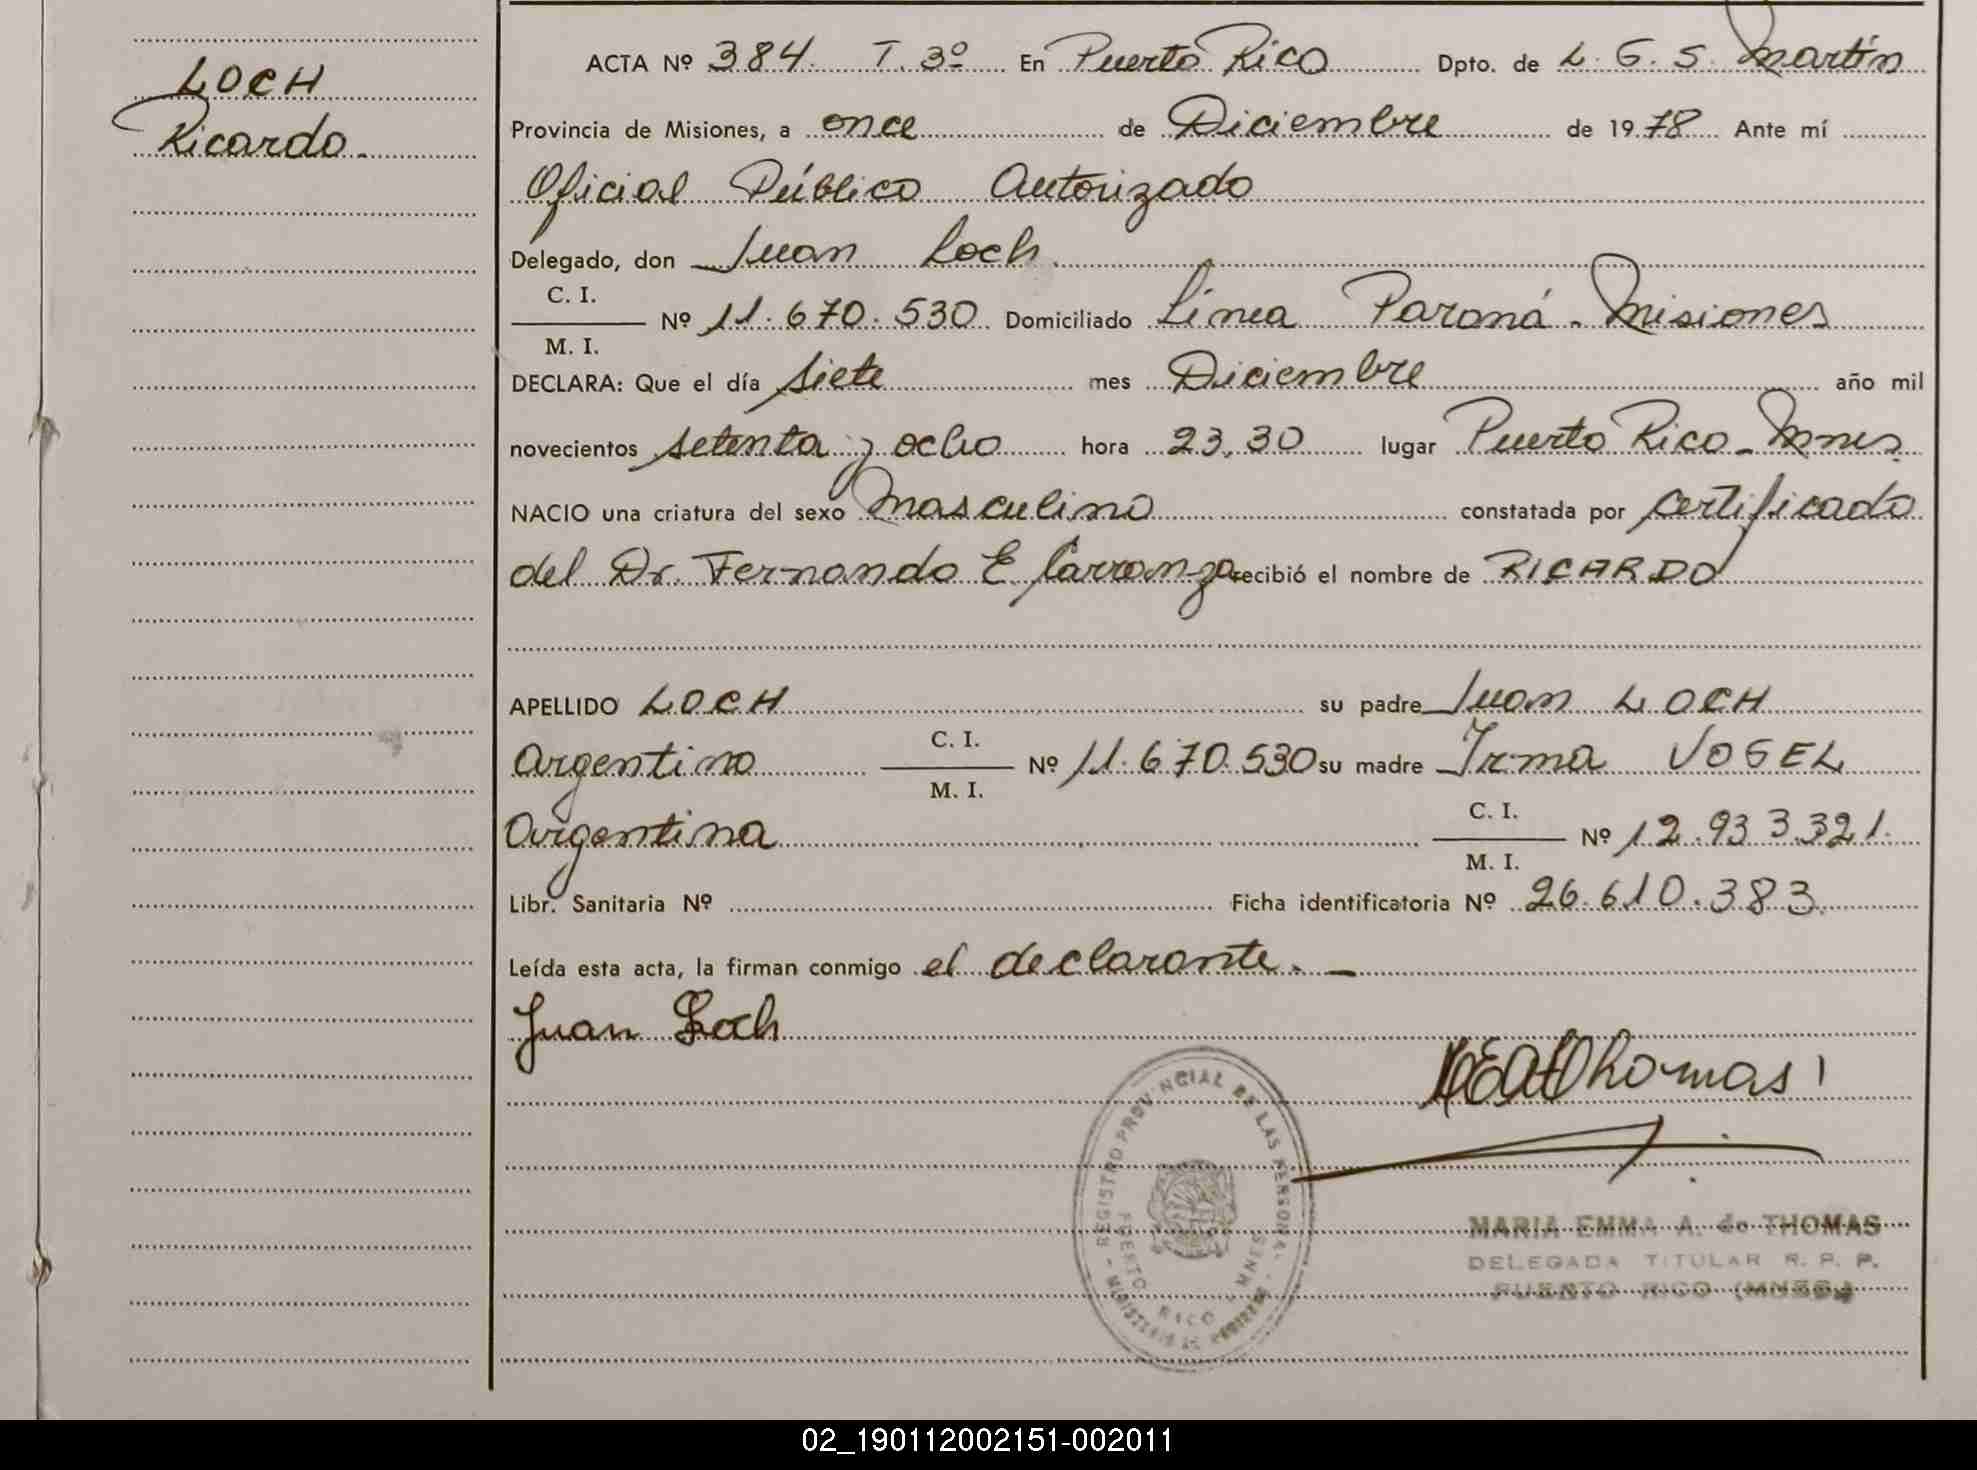 LOCH
Ricardo.
ACTA Nº 384. T. 3º En Puerto Rico Dpto. de L. G. S. Martín
Provincia de Misiones, a once de Diciembre de 1978 Ante mí
Oficial Público Autorizado
Delegado, don Juan Loch.
C. I.
Nº 11.670.530 Domiciliado Línea Paraná - Misiones
M. I.
DECLARA: Que el día siete mes Diciembre año mil
novecientos setenta y ocho hora 23,30 lugar Puerto Rico - Mnes.
NACIO una criatura del sexo Masculino constatada por certificado
del Dr. Fernando E. Carranza recibió el nombre de RICARDO
APELLIDO LOCH su padre Juan LOCH
Argentino C. I. Nº 11.670.530 su madre Irma VOGEL
M. I.
Argentina C. I. Nº 12.933.321.
M. I.
Libr. Sanitaria Nº Ficha identificatoria Nº 26.610.383.
Leída esta acta, la firman conmigo el declarante. -
Juan Loch
Thomas
REGISTRO PROVINCIAL DE LAS PERSONAS
PUERTO RICO - MNES
MINISTERIO DE GOBIERNO
MARIA EMMA A. de THOMAS
DELEGADA TITULAR R. P. P.
PUERTO RICO (MNES.)
02_190112002151-002011